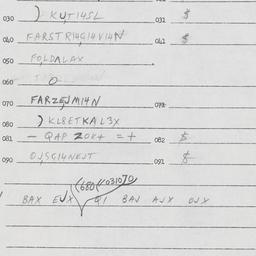 030 ) KUT14SL 031 $
040 FARSTR14G14V14N 041 $
050 FOLDALAX
060 O
070 FARZEJM14N 071
080 ) KL8ETKAL3X
081 - QAP 20K+ =+ 082 $
090 OJSG14NEJT 091 $
(680(1031070)
BAX EJX Q1 BAJ AJX OJX